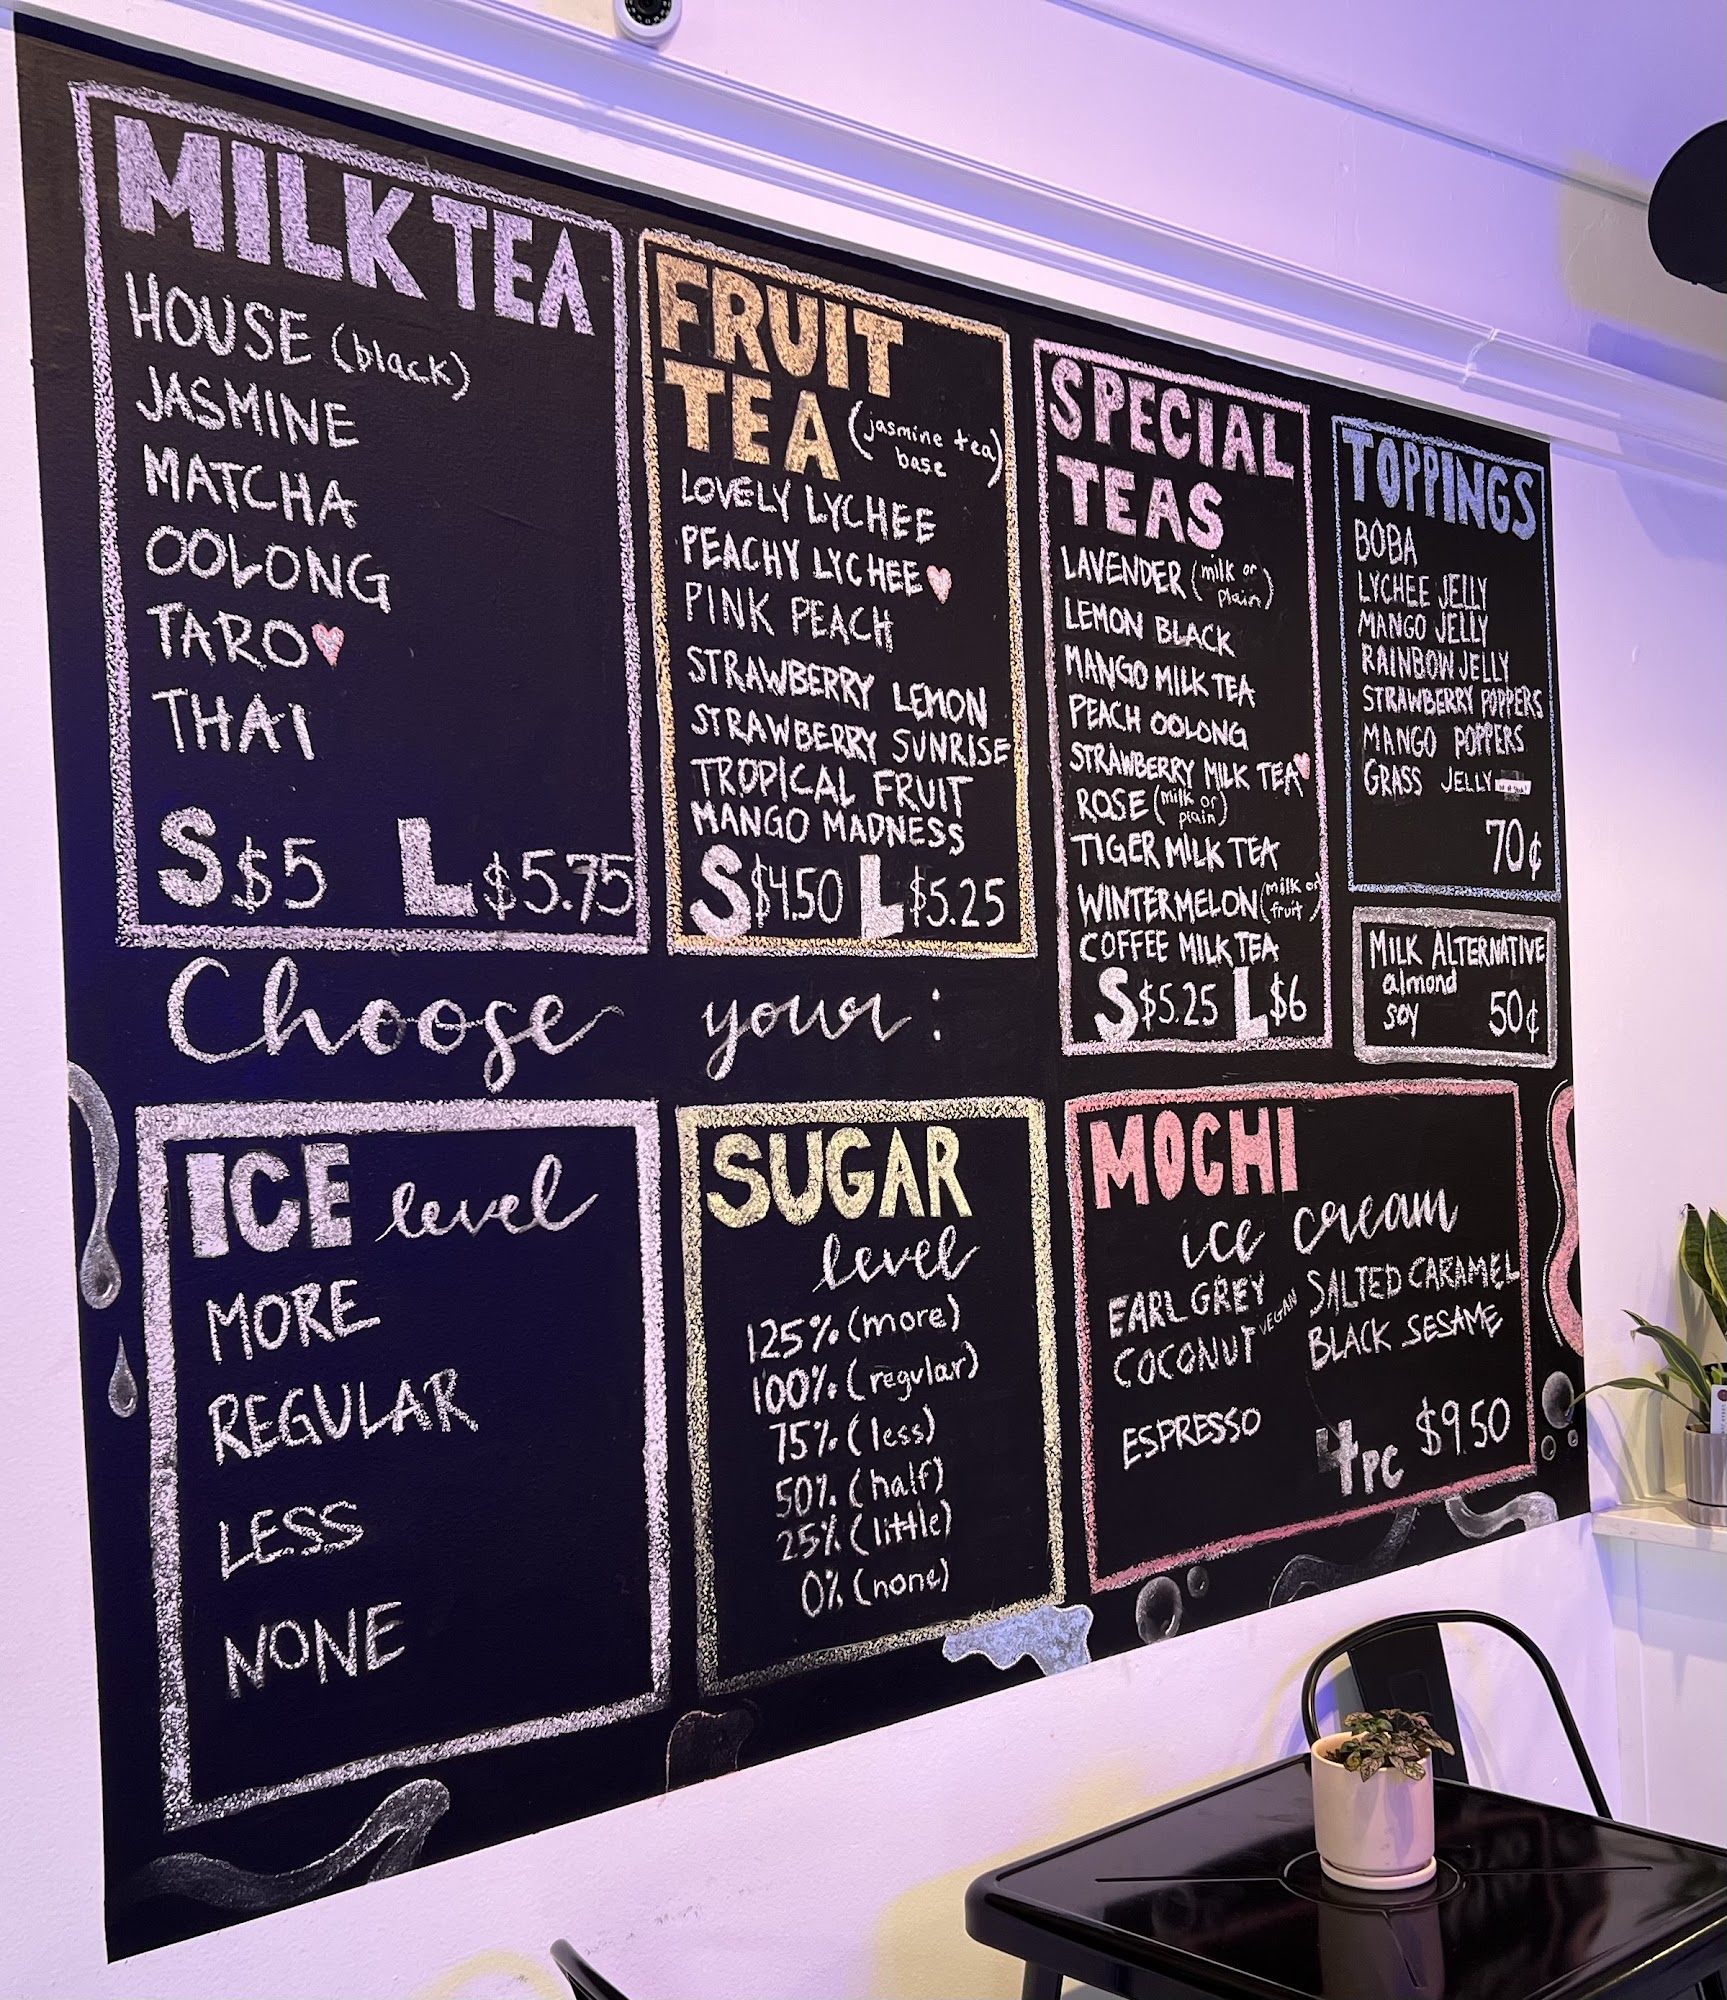 MILK TEA
HOUSE (black)
JASMINE
MATCHA
OOLONG
TARO
THAI
S $5 L $5.75
FRUIT
TEA (jasmine tea
base)
LOVELY LYCHEE
PEACHY LYCHEE
PINK PEACH
STRAWBERRY LEMON
STRAWBERRY SUNRISE
TROPICAL FRUIT
MANGO MADNESS
S $4.50 L $5.25
SPECIAL
TEAS
LAVENDER (milk or
plain)
LEMON BLACK
MANGO MILK TEA
PEACH OOLONG
STRAWBERRY MILK TEA
ROSE (milk or
plain)
TIGER MILK TEA
WINTERMELON (milk or
fruit)
COFFEE MILK TEA
S $5.25 L $6
TOPPINGS
BOBA
LYCHEE JELLY
MANGO JELLY
RAINBOW JELLY
STRAWBERRY POPPERS
MANGO POPPERS
GRASS JELLY
70¢
MILK ALTERNATIVE
almond
soy 50¢
Choose your:
ICE level
MORE
REGULAR
LESS
NONE
SUGAR
level
125% (more)
100% (regular)
75% (less)
50% (half)
25% (little)
0% (none)
MOCHI
ice cream
EARL GREY
COCONUT VEGAN
ESPRESSO
SALTED CARAMEL
BLACK SESAME
4pc $9.50